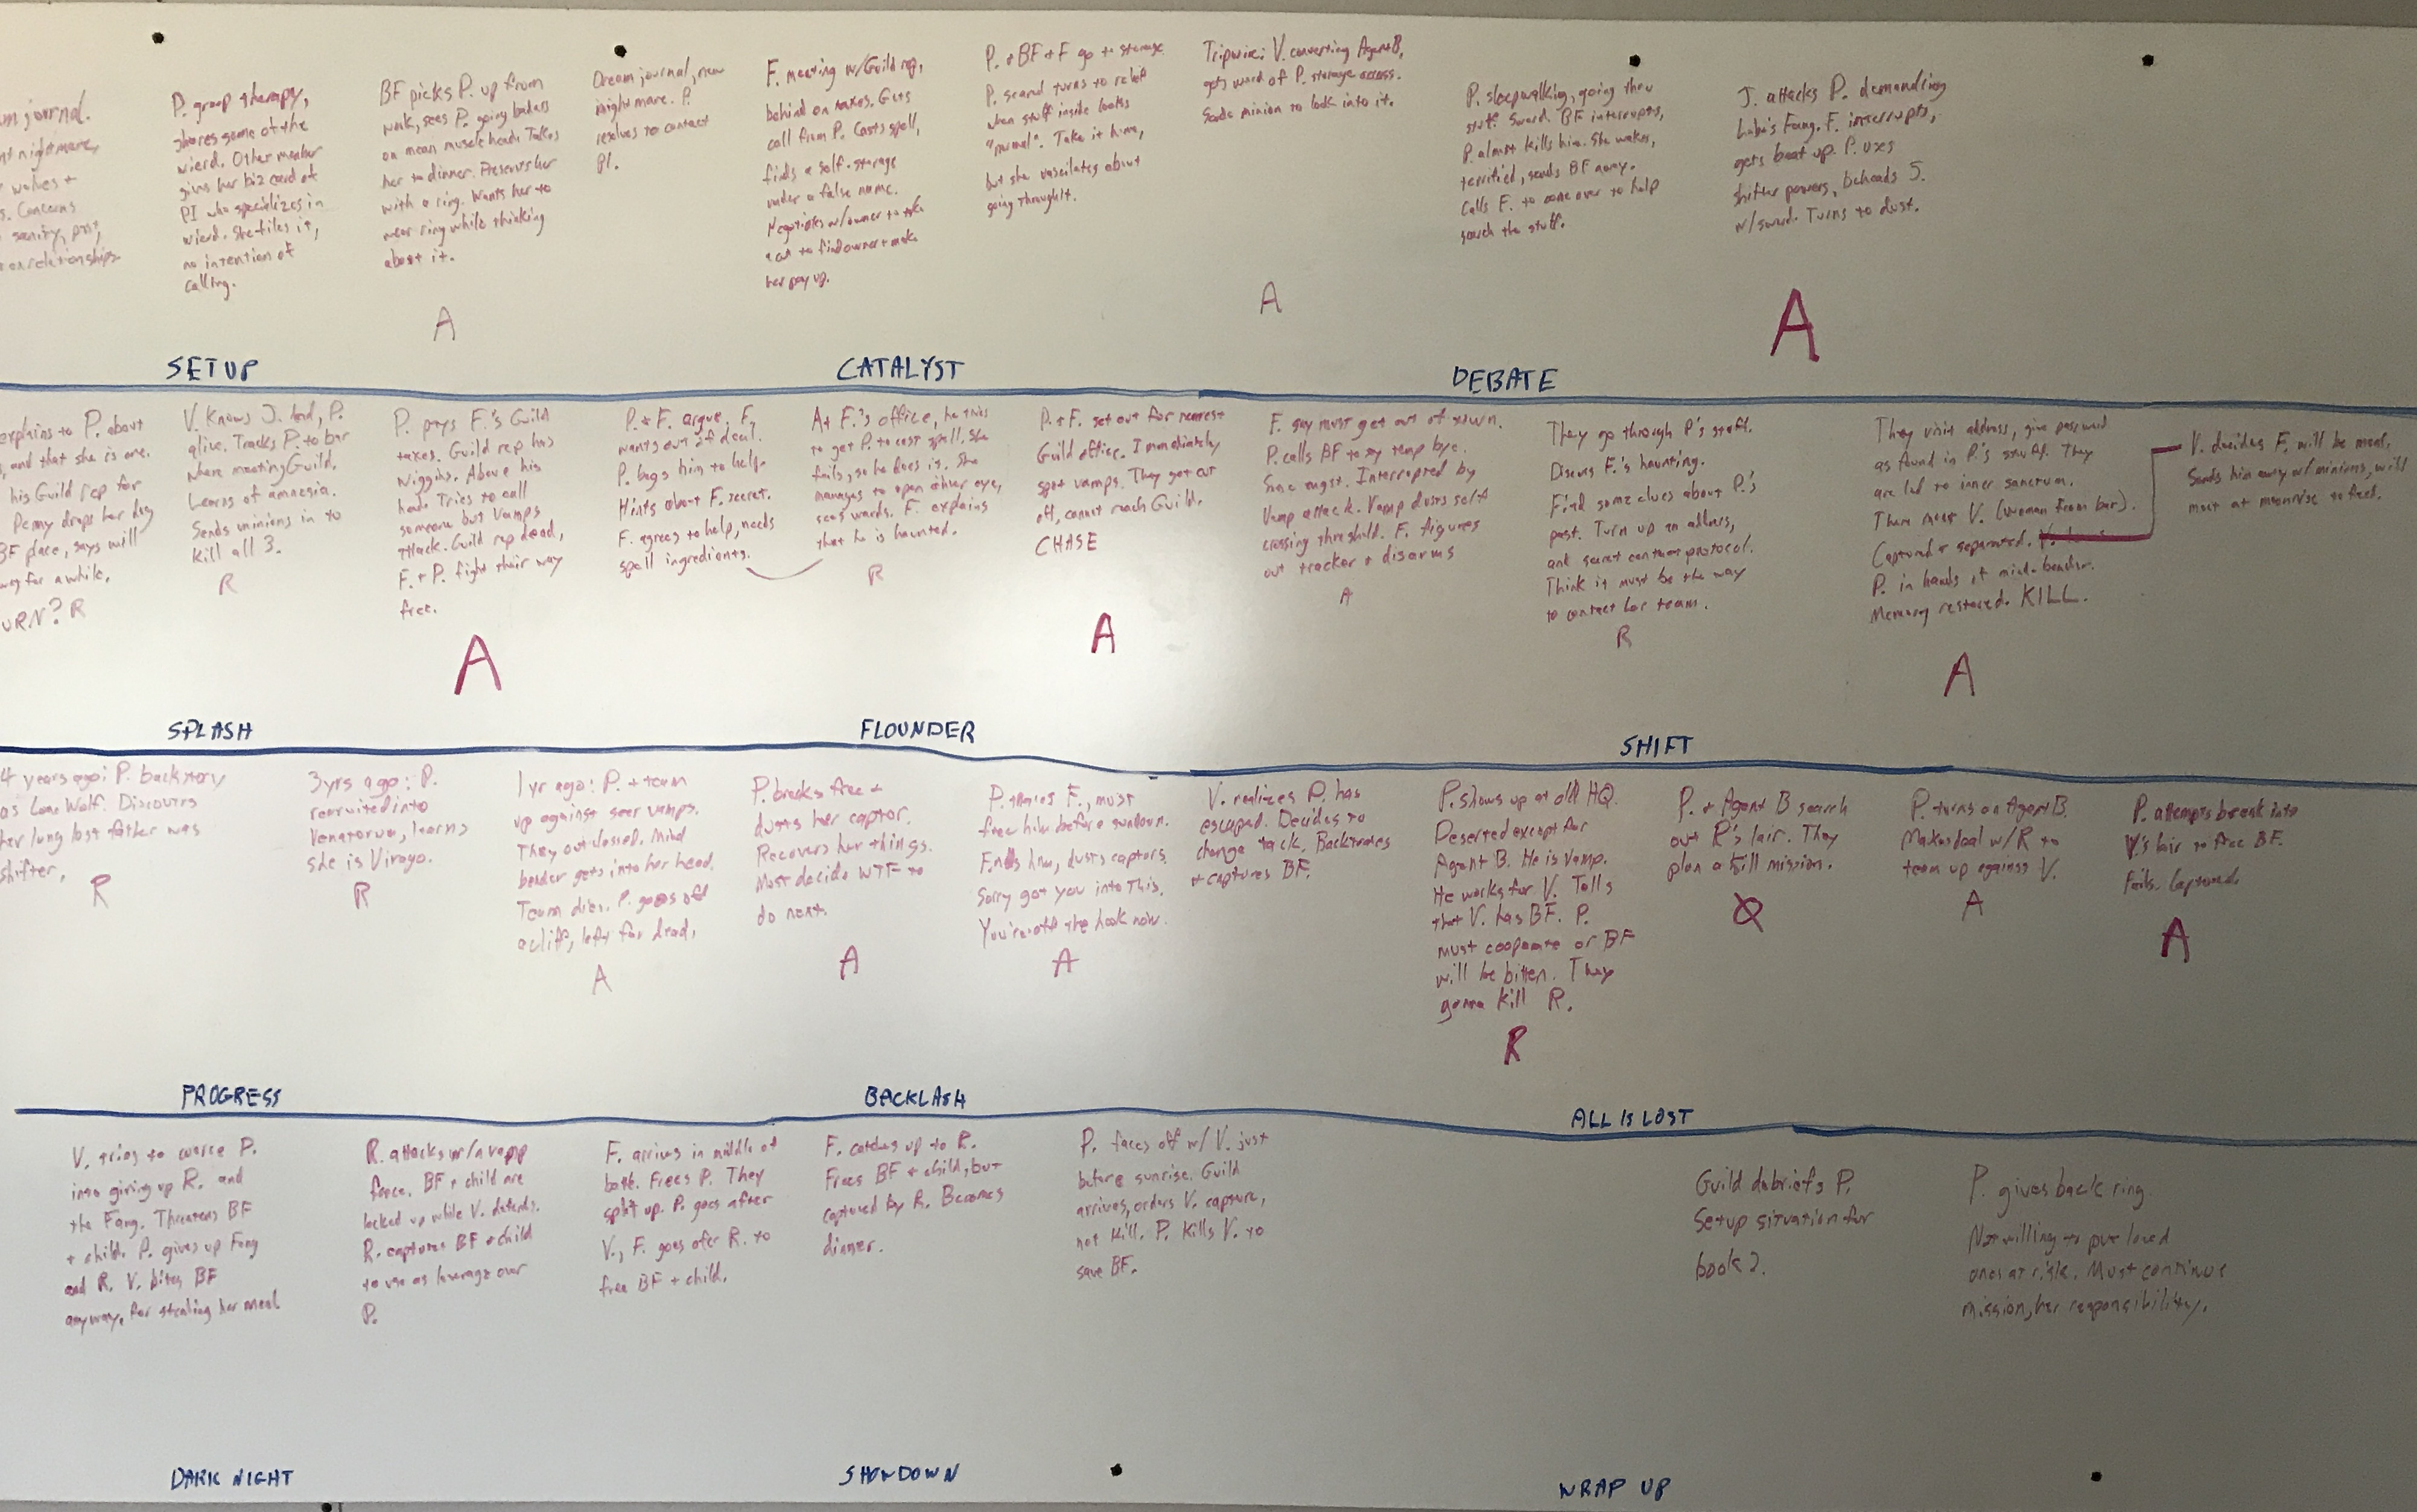 m journal.
nt nightmare,
wolves +
s. Concerns
sanity, past,
on relationships.
P. group therapy,
shares some of the
wierd. Other member
gives her biz card of
PI who specializes in
wierd. She files it,
no intention of
calling.
BF picks P. up from
work, sees P. going badass
on mean musclehead. Takes
her to dinner. Presents her
with a ring. Wants her to
wear ring while thinking
about it.
A
Dream journal, new
nightmare. P.
resolves to contact
PI.
F. meeting w/Guild rep,
behind on taxes. Gets
call from P. Casts spell,
finds a self-storage
under a false name.
Negotiates w/owner to take
a cut to find owner + make
her pay up.
P. + BF + F go to storage
P. scared turns to relief
when stuff inside looks
"normal". Take it home,
but she vascilates about
going through it.
Tripwire: V. converting Agent B,
gets word of P. storage access.
Sends minion to look into it.
A
P. sleepwalking, going thru
stuff. Sword. BF interrupts,
P. almost kills him. She wakes,
terrified, sends BF away.
Calls F. to come over to help
search the stuff.
J. attacks P. demanding
Fang. F. interrupts,
gets beat up. P. uses
shifter powers, beheads J.
w/sword. Turns to dust.
A
SETUP
CATALYST
DEBATE
explains to P. about
, and that she is one.
his Guild rep for
Penny drops her dog
BF place, says will
away for a while.
URN? R
V. knows J. died, P.
alive. Tracks P. to bar
where meeting Guild.
Learns of amnesia.
Sends minions in to
kill all 3.
R
P. pays F.'s Guild
taxes. Guild rep has
wiggins. Above his
head. Tries to call
someone but vamps
attack. Guild rep dead,
F. + P. fight their way
free.
A
P. + F. argue, F.
wants out of deal.
P. begs him to help.
Hints about F. secret.
F. agrees to help, needs
spell ingredients.
At F.'s office, he tries
to get P. to cast spell. She
fails, so he does it. She
manages to open other eye,
sees wards. F. explains
that he is haunted.
R
P. + F. set out for nearest
Guild office. Immediately
spot vamps. They get cut
off, cannot reach Guild.
CHASE
A
F. say must get out of town.
P. calls BF to say temp bye.
Some angst. Interrupted by
Vamp attack. Vamp dusts self
crossing threshold. F. figures
out tracker + disarms
A
They go through P.'s stuff.
Discuss F.'s haunting.
Find some clues about P.'s
past. Turn up an address,
and secret contact protocol.
Think it must be the way
to contact her team.
R
They visit address, give password
as found in P.'s stuff. They
are led to inner sanctum.
There meet V. (woman from bar).
Captured + separated.
P. in hands of mind-bender.
Memory restored. KILL.
A
V. decides F. will be meal.
Sends him away w/minions, will
meet at moonrise to feed.
SPLASH
FLOUNDER
SHIFT
4 years ago: P. backstory
as Lone Wolf. Discovers
her long lost father was
shifter.
R
3 yrs ago: P.
recruited into
Venatorum, learns
she is Virago.
R
1 yr ago: P. + team
up against seer vamps.
They outclassed. Mind
bender gets into her head.
Team dies. P. goes off
a cliff, left for dead.
A
P. breaks free +
dusts her captor.
Recovers her things.
Must decide WTF to
do next.
A
P. F., must
free him before sundown.
Finds him, dusts captors.
Sorry got you into this.
You're off the hook now.
A
V. realizes P. has
escaped. Decides to
change tack. Backtraces
+ captures BF.
P. shows up at old HQ.
Deserted except for
Agent B. He is vamp.
He works for V. Tells
that V. has BF. P.
must cooperate or BF
will be bitten. They
gonna kill R.
R
P. + Agent B search
out R's lair. They
plan a kill mission.
P. turns on Agent B.
Makes deal w/R to
team up against V.
A
P. attempts break into
V's lair to free BF.
Fails. Captured.
A
PROGRESS
BACKLASH
ALL IS LOST
V. tries to coerce P.
into giving up R. and
the Fang. Threatens BF
+ child. P. gives up Fang
and R. V. bites BF
anyway, for stealing her meal
R. attacks w/a vamp
force. BF + child are
locked up while V. defends.
R. captures BF + child
to use as leverage over
P.
F. arrives in middle of
battle. Frees P. They
split up. P. goes after
V., F. goes after R. to
free BF + child.
F. catches up to R.
Frees BF + child, but
captured by R. Becomes
dinner.
P. faces off w/ V. just
before sunrise. Guild
arrives, orders V. capture,
not kill. P. kills V. to
save BF.
Guild debriefs P.
Setup situation for
book 2.
P. gives back ring
Not willing to put loved
ones at risk. Must continue
mission, her responsibility.
DARK NIGHT
SHOWDOWN
WRAP UP